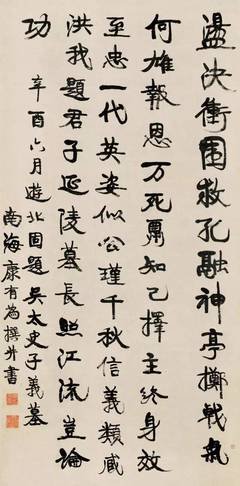 盪決衝圍救孔融神亭擲戟氣
何雄報恩万死知己擇主終身效
至忠一代英姿似公瑾千秋信義類臧
洪我題君子延陵墓長照江流豈論
功
辛酉六月遊北固題吳太史子義墓
南海康有為撰并書